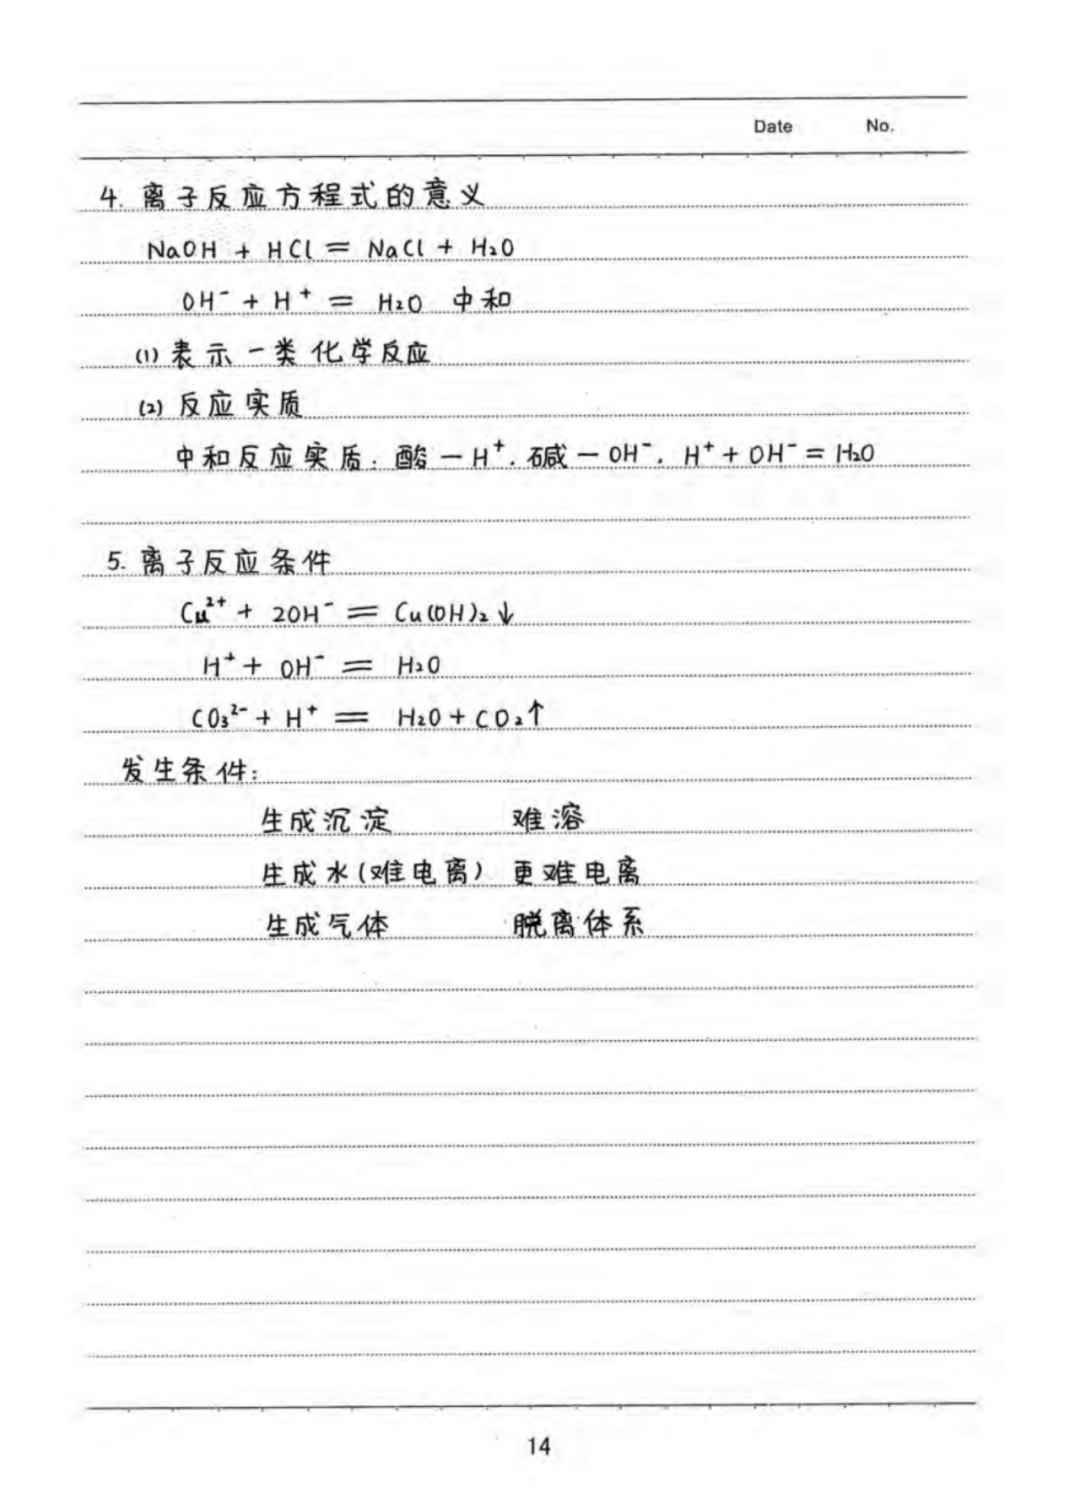 Date No.
4. 离子反应方程式的意义
NaOH + HCl = NaCl + H₂O
OH⁻ + H⁺ = H₂O 中和
(1) 表示一类化学反应
(2) 反应实质
中和反应实质：酸—H⁺. 碱—OH⁻. H⁺ + OH⁻ = H₂O
5. 离子反应条件
Cu²⁺ + 2OH⁻ = Cu(OH)₂↓
H⁺ + OH⁻ = H₂O
CO₃²⁻ + H⁺ = H₂O + CO₂↑
发生条件：
生成沉淀 难溶
生成水(难电离) 更难电离
生成气体 脱离体系
14